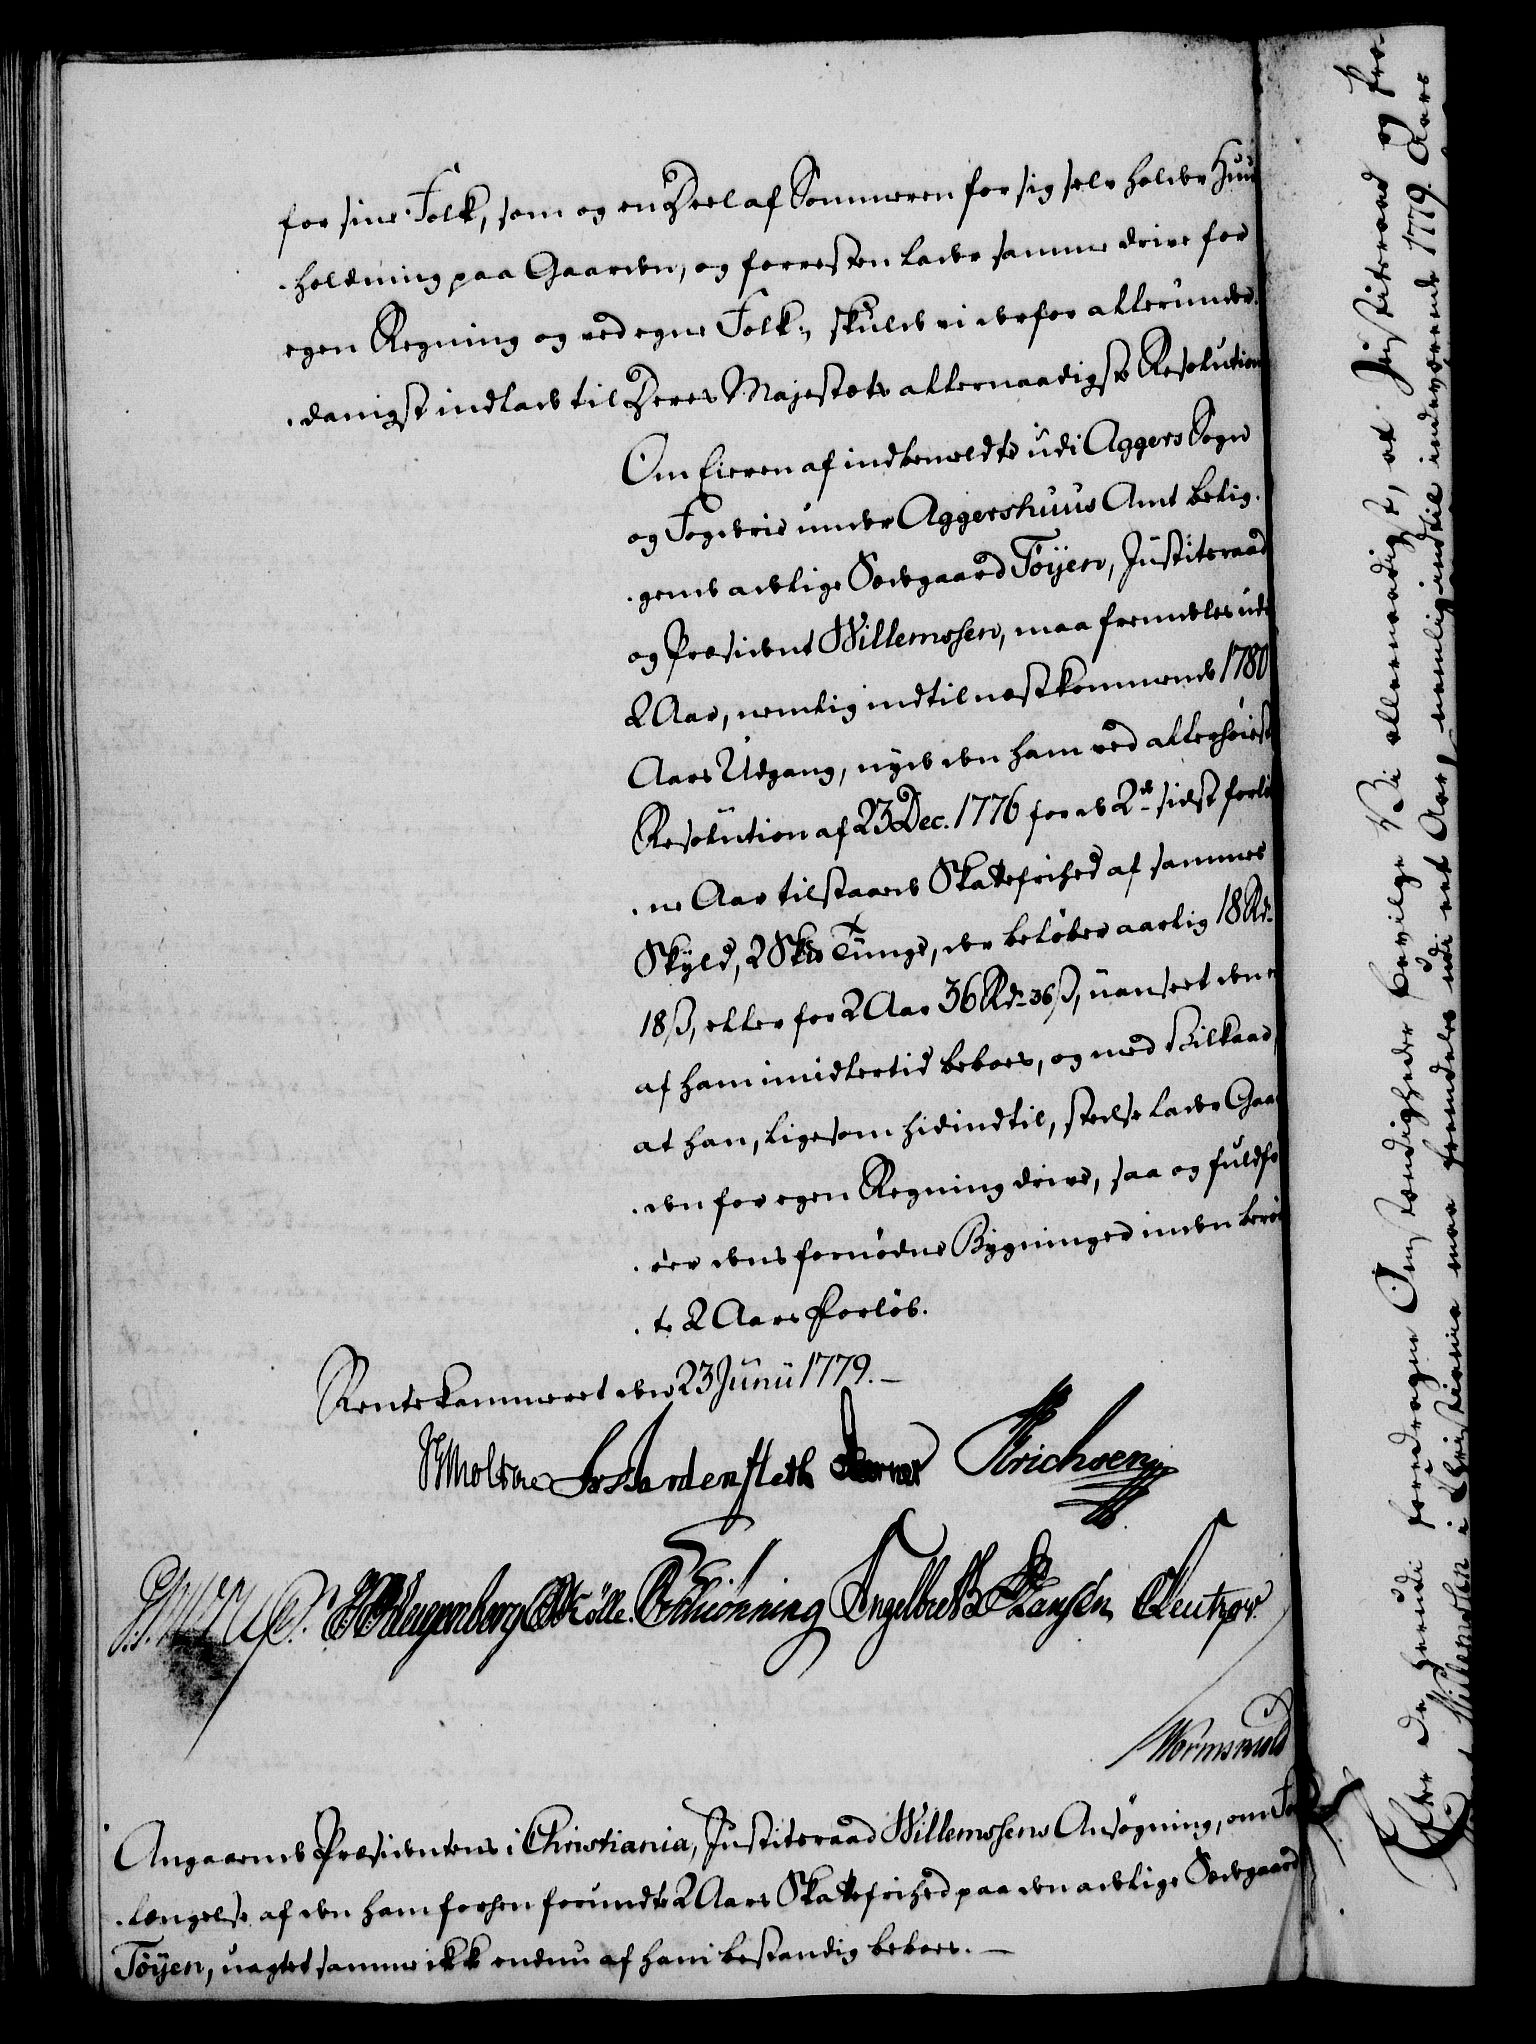 for sine Folk, som og en Deel af Sommeren for sig selv holder Huus
holdning paa Gaarden, og forresten lader samme drive for
egen Regning og ved egne Folk; skulde vi derfor allerunder
danigst indlade til Deres Majestæts allernaadigste Resolution
Om Eieren af indbemeldte udi Aggers Sogn
og Fogderie under Aggershuus Amt belig
gende adelige Sædegaard Töyen, Justitsraad
og Præsident Willemssen, maa fremdeles udi
2 Aar, nemlig indtil næstkommende 1780
Aars Udgang, nyde den ham ved allerhöieste
Resolution af 23 Dec. 1776 for de 2de sidst forlö
ne Aar tilstaaede Skattefrihed af sammes
Skyld, 2 Skd Tunge, der belöber aarlig 18 Rd
18 ß, eller for 2 Aar 36 Rd 36 ß, uanseet den ei
af ham imidlertid beboes, og med Vilkaar,
at han, ligesom hidindtil, stedse lader Gaar
den for egen Regning drive, saa og fuldfö
rer dens fornödne Bygninger inden berör
te 2 Aars Forlöb.
Rentekammeret den 23 Junii 1779.
Moltke Ardenfleth Erichsen
Hagenberg Schiönning Engelbreth Hansen
Wormskiold
Angaaende Præsidentens i Christiania, Justitsraad Willemssens Ansögning, om For
længelse af den ham forhen forundte 2 Aars Skattefrihed paa den adelige Sædegaard
Töyen, uagtet samme ikke endnu af ham bestandig beboes.
Efter de herudi foredragne Omstændigheder bevilge Vi allernaadigst, at Justitsraad og Præ
sident Willemssen i Christiania maa fremdeles udi eet Aar, nemlig indtil indeværende 1779 Aars